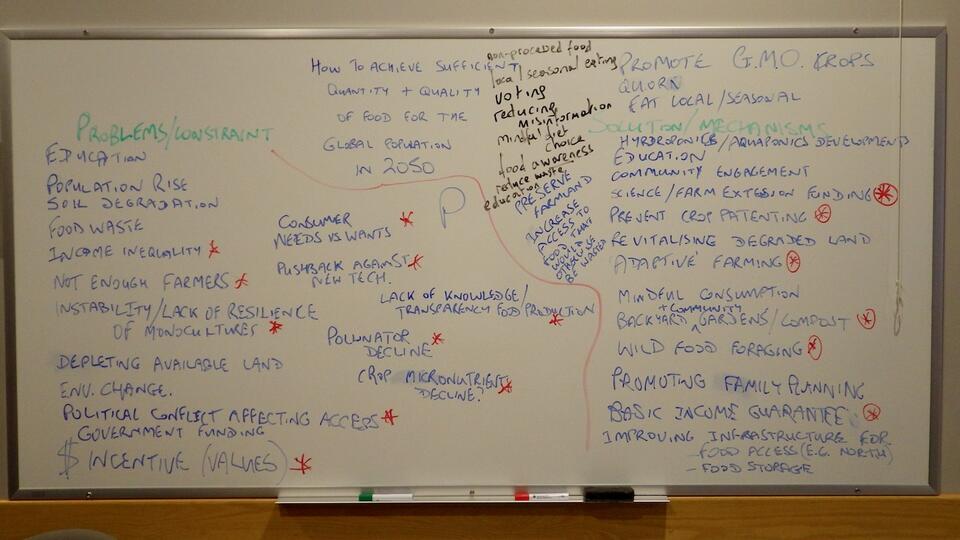 HOW TO ACHIEVE SUFFICIENT
QUANTITY + QUALITY
OF FOOD FOR THE
GLOBAL POPULATION
IN 2050
PROBLEMS/CONSTRAINT
EDUCATION
POPULATION RISE
SOIL DEGRADATION
FOOD WASTE
INCOME INEQUALITY *
NOT ENOUGH FARMERS *
INSTABILITY/LACK OF RESILIENCE
OF MONOCULTURES *
DEPLETING AVAILABLE LAND
ENV. CHANGE.
POLITICAL CONFLICT AFFECTING ACCESS *
GOVERNMENT FUNDING
$ INCENTIVE (VALUES) *
CONSUMER *
NEEDS VS WANTS
PUSHBACK AGAINST *
NEW TECH.
LACK OF KNOWLEDGE/
TRANSPARENCY FOOD PRODUCTION *
POLLINATOR *
DECLINE
CROP MICRONUTRIENT *
DECLINE?
P
non-processed food
local seasonal eating
voting
reducing
misinformation
mindful diet
choice
food awareness
reduce waste
education
PRESERVE
FARMLAND
INCREASE
ACCESS TO
FOOD THAT
WOULD
OTHERWISE
BE WASTED
PROMOTE G.M.O. CROPS
QUORN
EAT LOCAL/SEASONAL
SOLUTION/MECHANISMS
HYDROPONICS/AQUAPONICS DEVELOPMENT
EDUCATION
COMMUNITY ENGAGEMENT
SCIENCE/FARM EXTESION FUNDING *
PREVENT CROP PATENTING *
REVITALISING DEGRADED LAND
ADAPTIVE FARMING *
MINDFUL CONSUMPTION
+ COMMUNITY
BACKYARD GARDENS/COMPOST *
WILD FOOD FORAGING *
PROMOTING FAMILY PLANNING
BASIC INCOME GUARANTEE *
IMPROVING INFRASTRUCTURE FOR
- FOOD ACCESS (E.G. NORTH)
- FOOD STORAGE